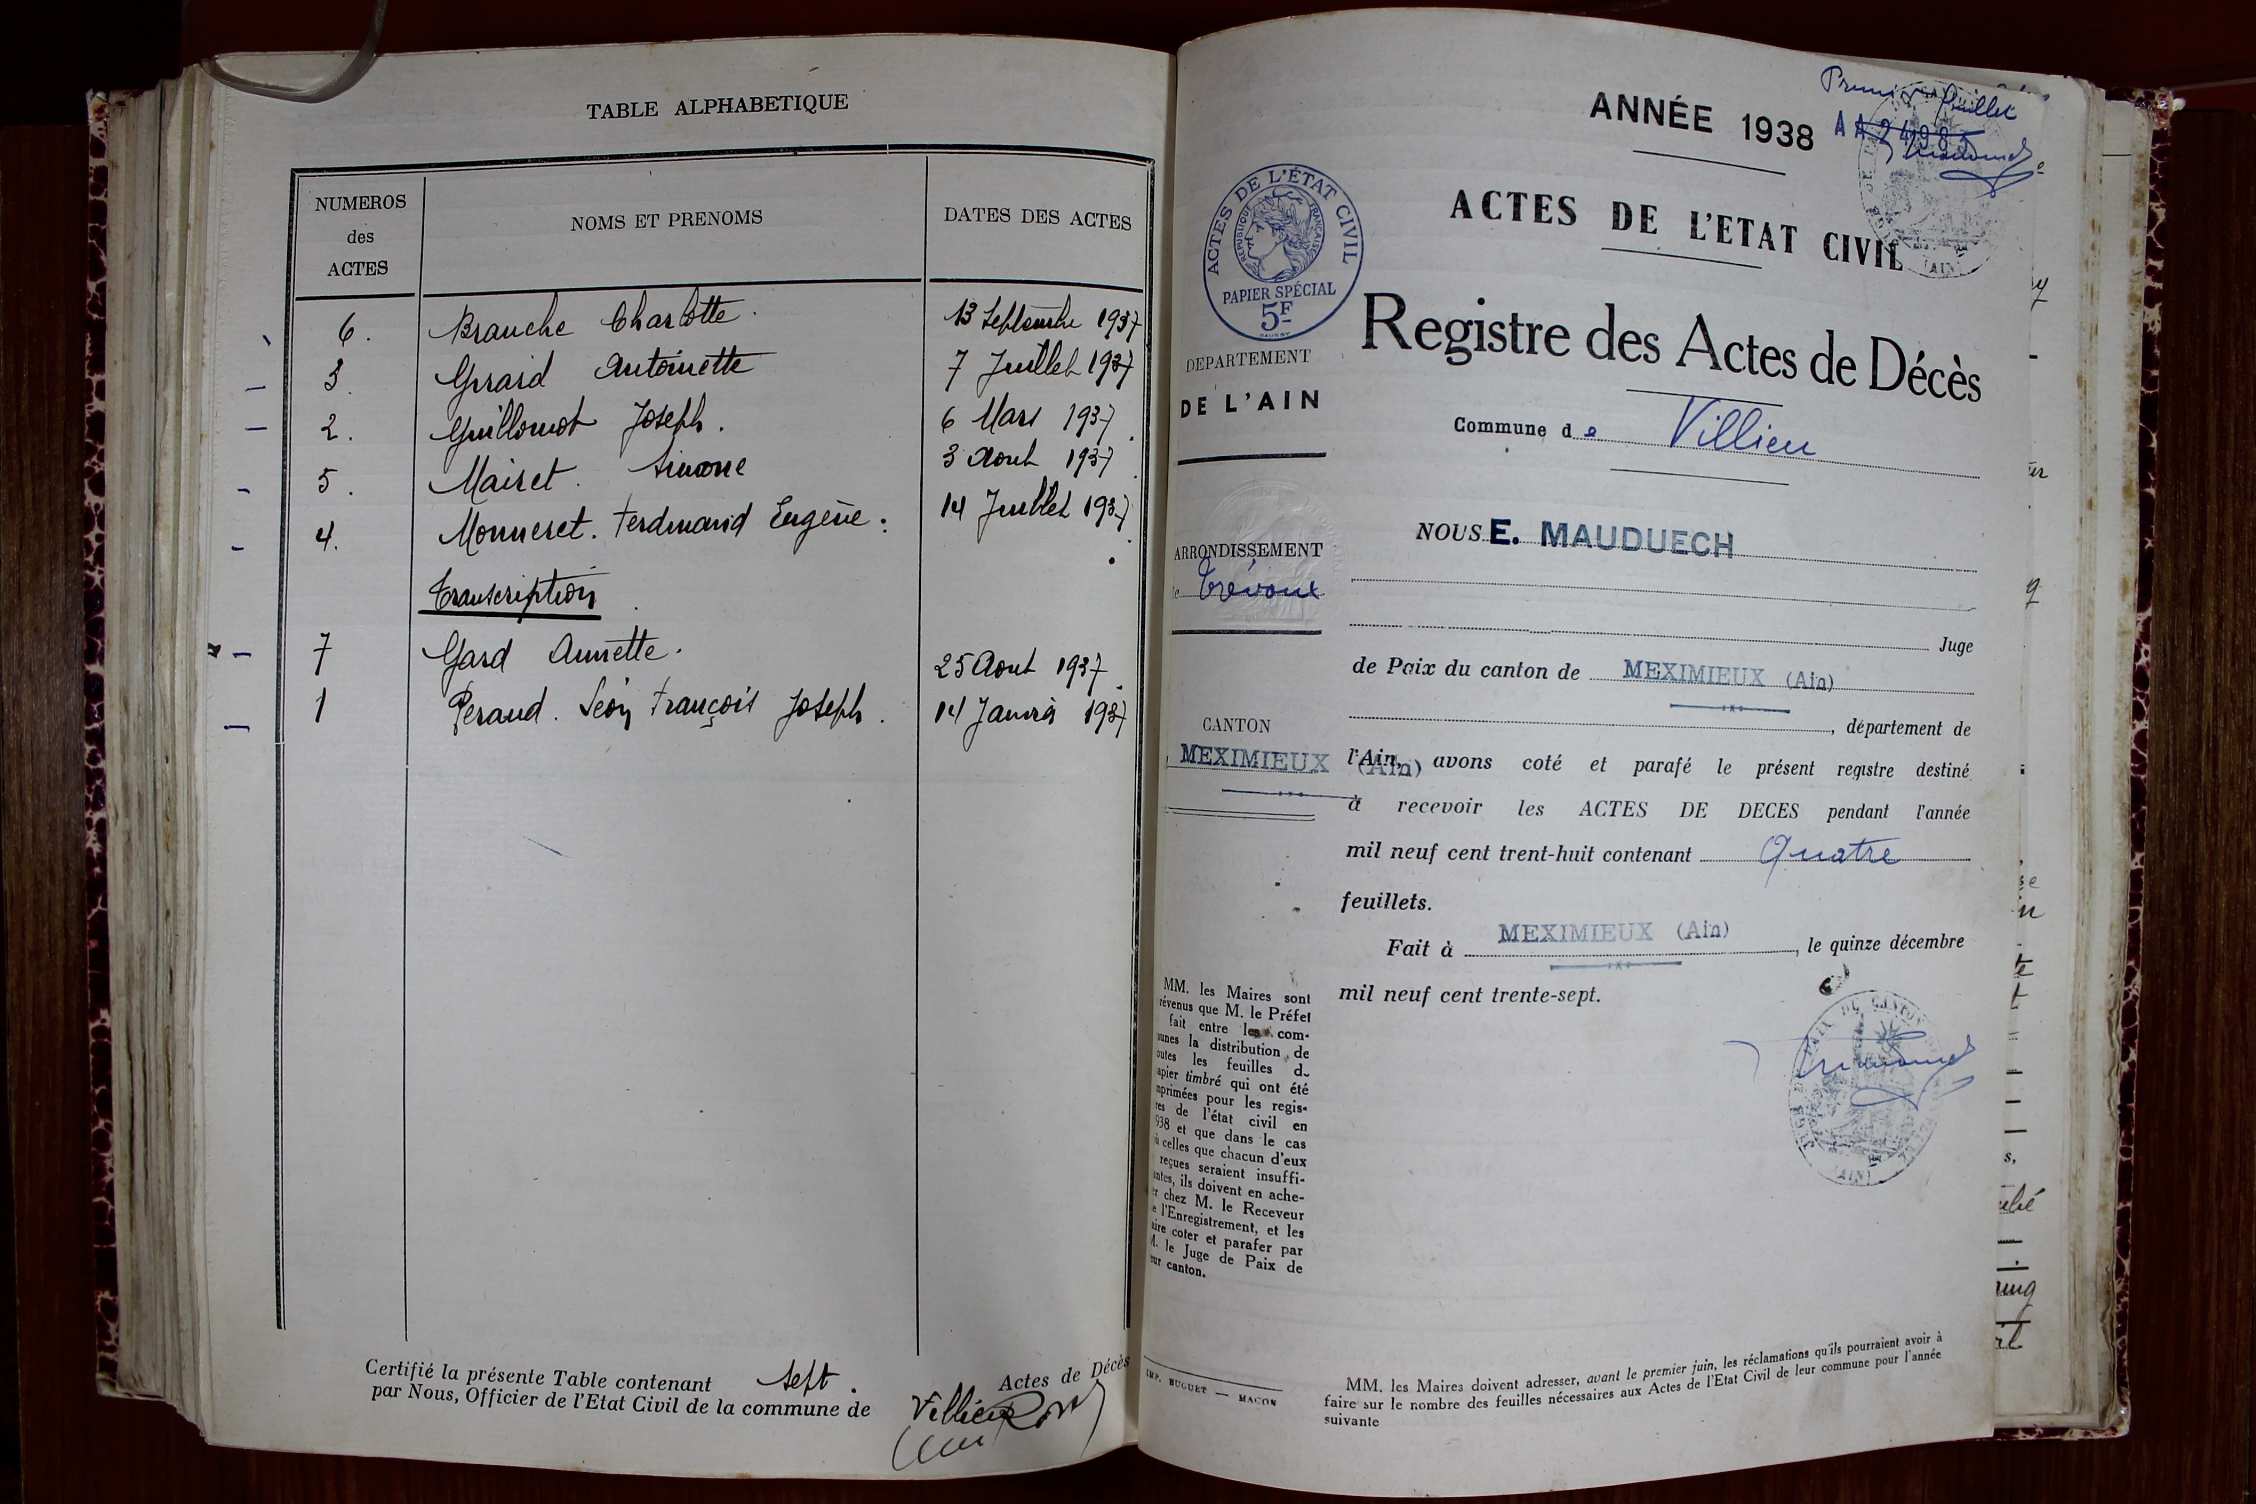 TABLE ALPHABETIQUE
NUMEROS des ACTES
NOMS ET PRENOMS
DATES DES ACTES
6. Branche Charlotte. 13 Septembre 1937
3. Girard Antoinette 7 Juillet 1937
2. Guillomot Joseph. 6 Mars 1937
5. Mairet. Simone 3 Aout 1937
4. Monneret. Ferdinand Eugène. 14 Juillet 1937
Transcription
7 Gard Annette. 25 Aout 1937
1 Peraud. Léon François Joseph. 14 Janvier 1937
Certifié la présente Table contenant sept. Actes de Décès
par Nous, Officier de l'Etat Civil de la commune de Villieu
Premier feuillet
ANNÉE 1938
AA 24985
ACTES DE L'ETAT CIVIL
ACTES DE L'ÉTAT CIVIL
REPUBLIQUE FRANÇAISE
PAPIER SPÉCIAL
5F
Registre des Actes de Décès
DEPARTEMENT
DE L'AIN
Commune de Villieu
NOUS E. MAUDUECH
ARRONDISSEMENT
Trévoux
Juge
de Paix du canton de MEXIMIEUX (Ain)
, département de
CANTON
MEXIMIEUX (Ain)
l'Ain, avons coté et parafé le présent registre destiné
à recevoir les ACTES DE DECES pendant l'année
mil neuf cent trent-huit contenant Quatre
feuillets.
Fait à MEXIMIEUX (Ain), le quinze décembre
mil neuf cent trente-sept.
MM. les Maires sont
révenus que M. le Préfet
fait entre les com-
munes la distribution de
outes les feuilles d
apier timbré qui ont été
mprimées pour les regis-
res de l'état civil en
938 et que dans le cas
ù celles que chacun d'eux
reçues seraient insuffi-
antes, ils doivent en ache-
er chez M. le Receveur
e l'Enregistrement, et les
aire coter et parafer par
M. le Juge de Paix de
eur canton.
IMP. BUGUET — MACON
MM. les Maires doivent adresser, avant le premier juin, les réclamations qu'ils pourraient avoir à
faire sur le nombre des feuilles nécessaires aux Actes de l'Etat Civil de leur commune pour l'année
suivante